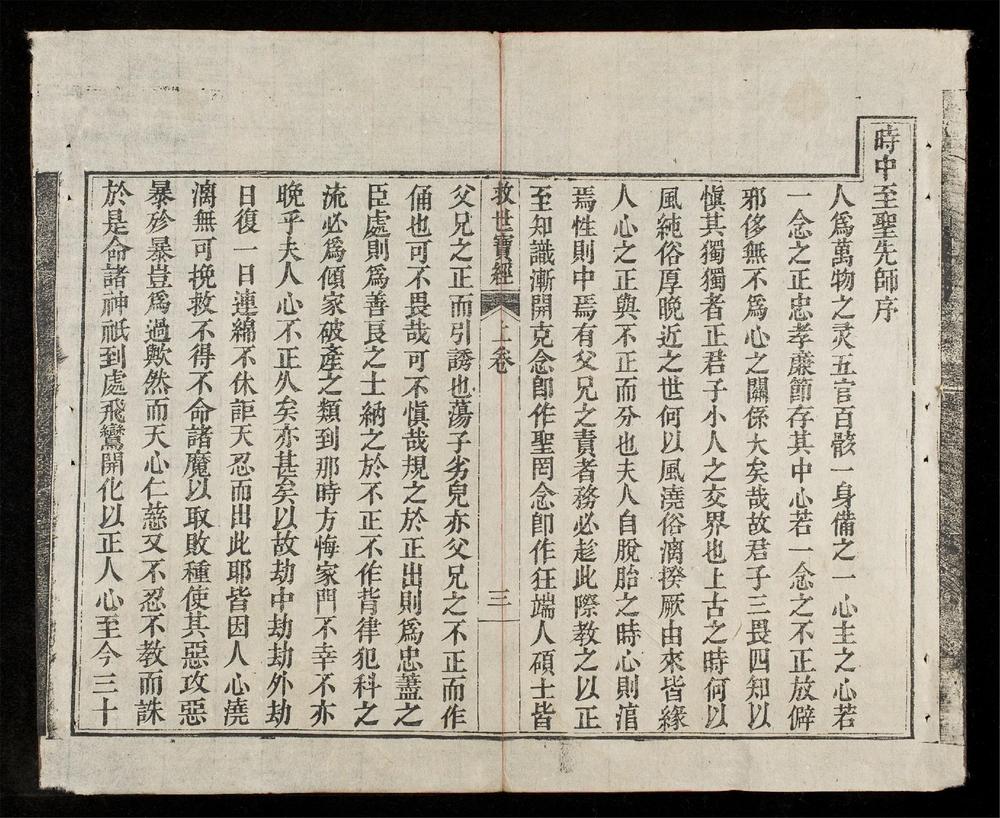 時中至聖先師序
人爲萬物之灵五言百骸一身備之一心主之心若
一念之正忠孝廉節存其中心若一念之不正放僻
邪侈無不爲心之關係大矣哉故君子三畏四知以
愼其獨獨者正君子小人之交界也上古之時何以
風純俗厚晚近之世何以風澆俗漓揆厥由來皆緣
人心之正與不正而分也夫人自脫胎之時心則涫
焉性則中焉有父兄之責者務必趁此際教之以正
至知識漸開克念卽作聖罔念卽作狂端人碩士皆
救世寶經 上卷 三
父兄之正而引誘也蕩子劣兒亦父兄之不正而作
俑也可不畏哉可不愼哉規之於正出則爲忠藎之
臣處則爲善良之士納之於不正不作背律犯科之
流必爲傾家破產之類到那時方悔家門不幸不亦
晚乎夫人心不正久矣亦甚矣以故劫中劫劫外劫
日復一日連綿不休詎天忍而出此耶皆因人心澆
漓無可挽救不得不命諸魔以取敗種使其惡攻惡
暴殄暴豈爲過歟然而天心仁慈又不忍不教而誅
於是命諸神祇到處飛鸞開化以正人心至今三十